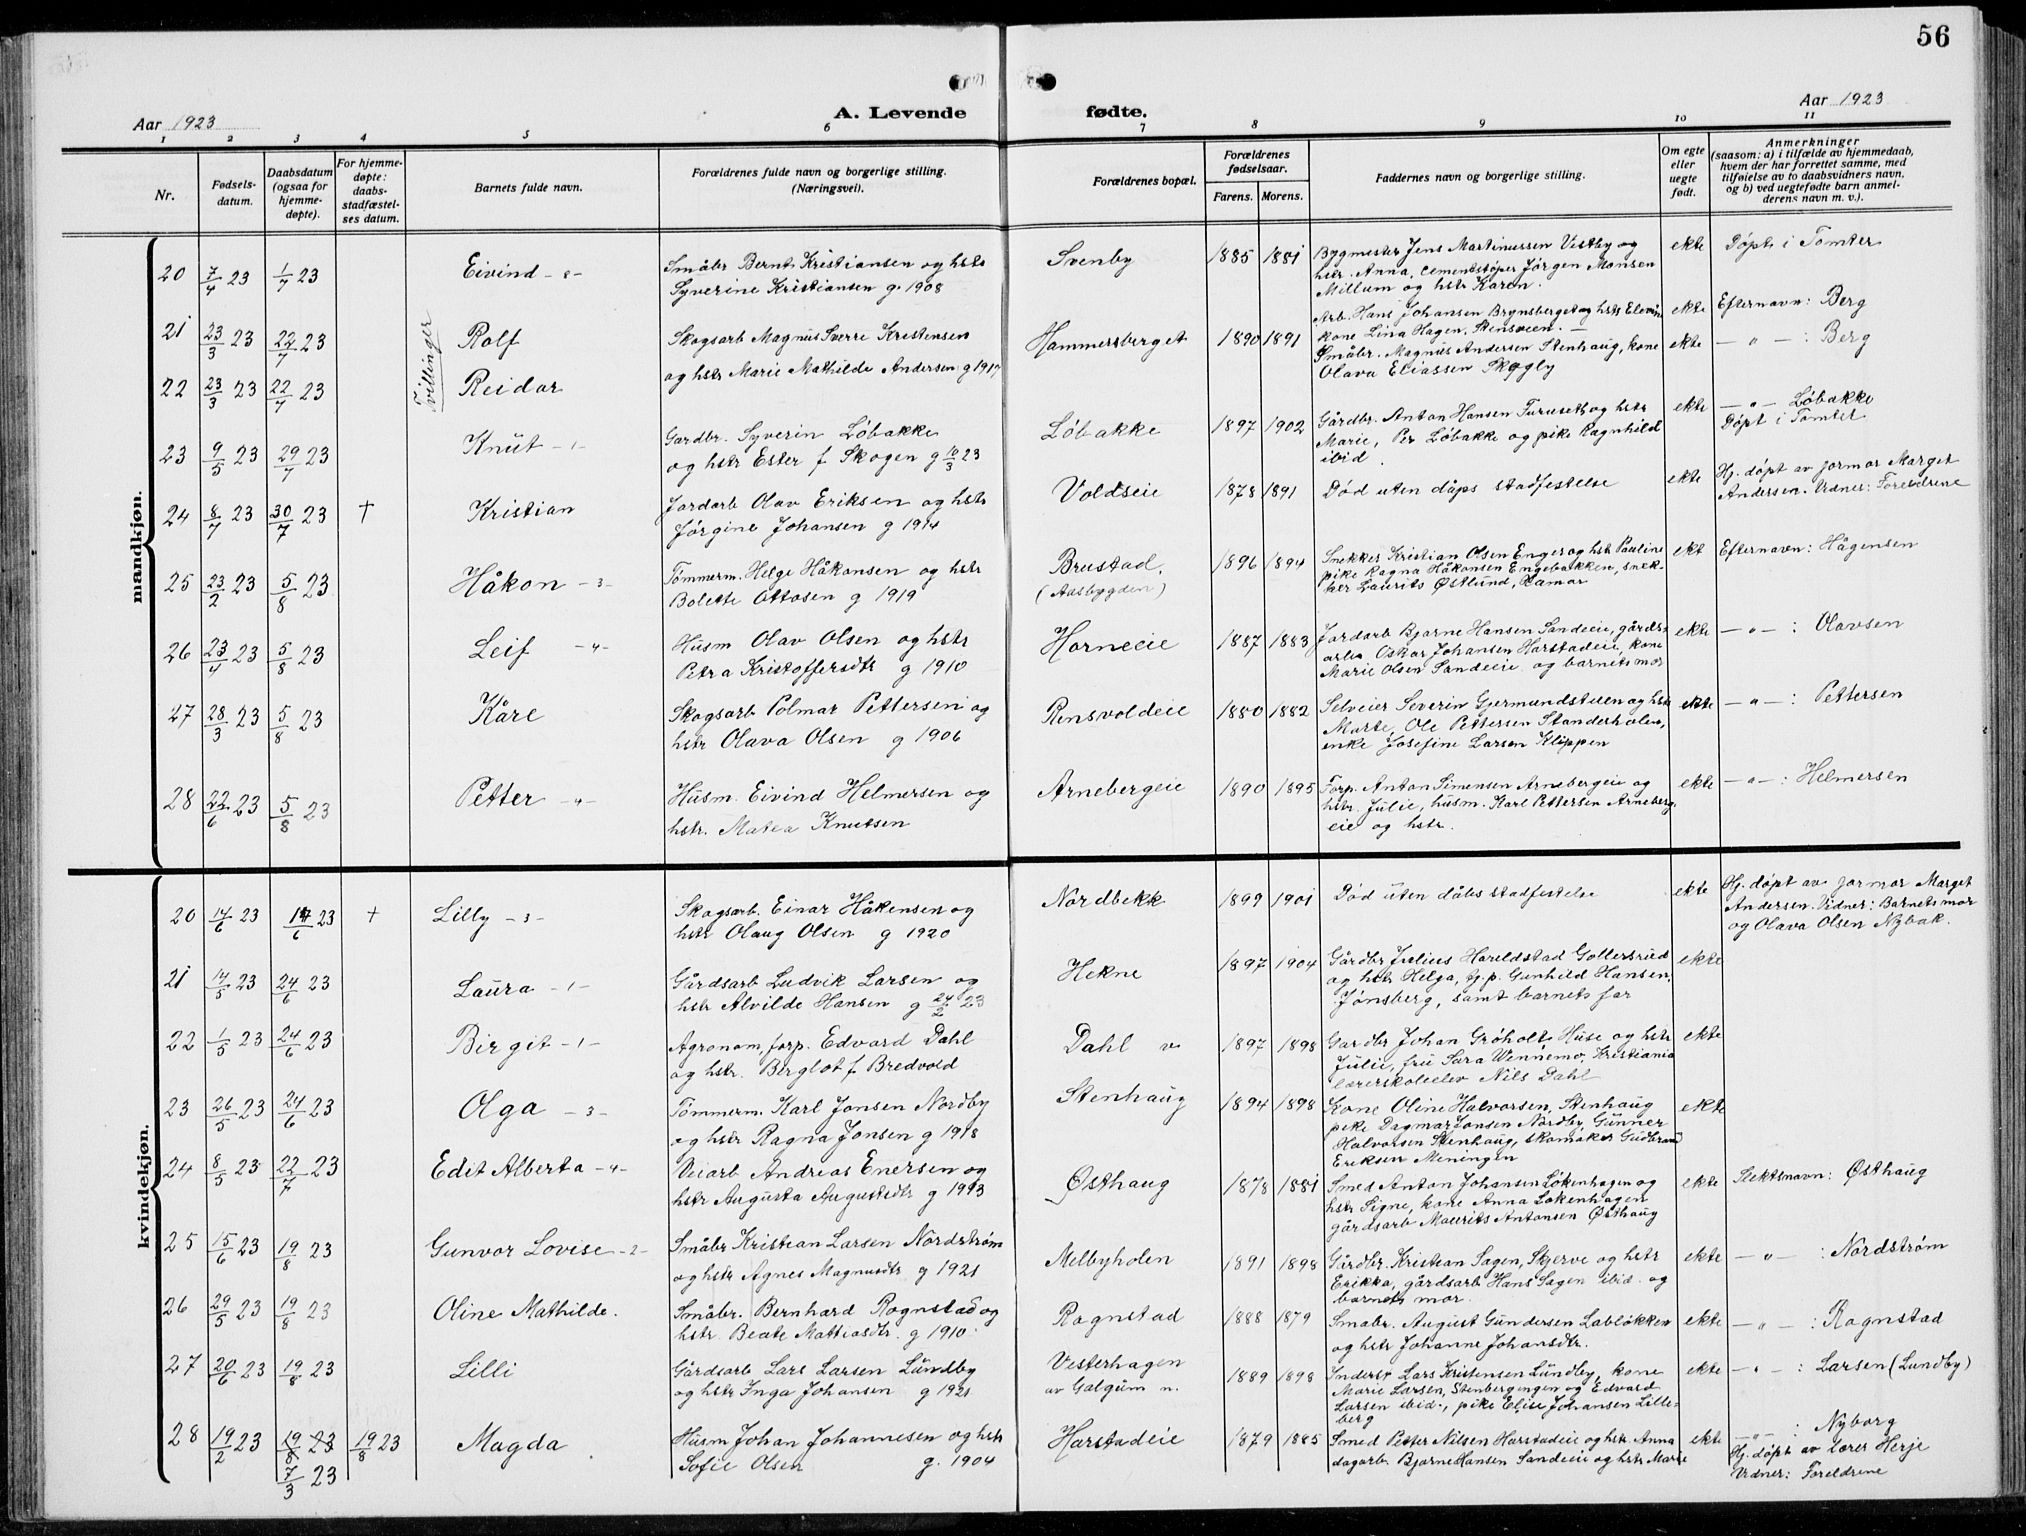 56
Aar 1923
A. Levende fødte.
Aar 1923
1 2 3 4 5 6 7 8 9 10 11
Nr.
Fødsels-
datum.
Daabsdatum
(ogsaa for
hjemme-
døpte).
For hjemme-
døpte:
daabs-
stadfæstel-
ses datum.
Barnets fulde navn.
Forældrenes fulde navn og borgerlige stilling.
(Næringsvei).
Forældrenes bopæl.
Forældrenes
fødselsaar.
Farens. Morens.
Faddernes navn og borgerlige stilling.
Om egte
eller
uegte
født.
Anmerkninger
(saasom: a) i tilfælde av hjemmedaab,
hvem der har forrettet samme, med
tilføielse av to daabsvidners navn,
og b) ved uegtefødte barn anmel-
derens navn m. v.).
mandkjøn.
20 7/4 23 1/7 23 Eivind - 8 -
Småbr Bernt Kristiansen og hstr
Syverine Kristiansen g. 1908
Svenby 1885 1881
Bygmester Jens Martinussen Vestby og
hstr. Anna, cementstøper Jørgen Monsen
Millum og hstr Karen.
ekte Døpt i Tomter
Tvillinger
21 23/3 23 22/7 23 Rolf
Skogsarb Magnus Sverre Kristensen
og hstr Marie Mathilde Andersen g 1917
Hammersberget 1890 1891
Arb. Hans Johansen Brynsberget og hstr
kone Lina Hagen, Stensveen. —
ekte Efternavn: Berg
22 23/3 23 22/7 23 Reidar
Småbr. Magnus Andersen Stenhaug, kone
Olava Eliassen Skogly
ekte — " — : Berg
23 9/5 23 29/7 23 Knut - 1 -
Gardbr. Syverin Løbakke
og hstr Ester f Skogen g 10/3 23
Løbakke 1897 1902
Gårdbr. Anton Hansen Furuseth og hstr
Marie, Per Løbakke og pike Ragnhild
ibid.
ekte — " — Løbakke
Døpt i Tomter
24 8/7 23 30/7 23 † Kristian
Jordarb Olav Eriksen og hstr
Jørgine Johansen g 1914
Voldseie 1878 1891
Død uten dåps stadfestelse
ekte Hj. døpt av jormor Marget
Andersen. Vidner: Foreldrene
25 23/2 23 5/8 23 Håkon - 3 -
Tømmerm. Helge Håkonsen og hstr
Bolette Ottosen g 1919
Brustad,
(Aasbygden)
1896 1894
Snekker Kristian Olsen Enger og hstr Pauline
pike Ragna Håkonsen Engebakken, snek-
ker Laurits Østlund, Hamar
ekt Efternavn: Hågensen
26 23/4 23 5/8 23 Leif - 4 -
Husm Olav Olsen og hstr
Petra Kristoffersdtr g 1910
Horneeie 1887 1883
Jordarb Bjarne Hansen Sandeeie, gårds-
arb. Oskar Johansen Harstadeie, kone
Marie Olsen Sandeeie og barnets mor
ekte — " — : Olavsen
27 28/3 23 5/8 23 Kåre
Skogsarb Polmar Pettersen og
hstr Olava Olsen g 1906
Rensvoldeie 1880 1882
Selveier Severin Gjermundstuen og hstr
Marte, Ole Pettersen Standerholen,
enke Josefine Larsen Klippen
ekte — " — : Pettersen
28 22/6 23 5/8 23 Petter - 4 -
Husm. Eivind Helmersen og
hstr. Matea Knutsen
Arnebergeie 1890 1895
Forp. Anton Simensen Arnebergeie og
hstr. Julie, husm. Karl Pettersen Arneberg
eie og hstr.
ekte — " — : Helmersen
kvindekjøn.
20 14/6 23 14/6 23 † Lilly - 3 -
Skogsarb. Einar Håkensen og
hstr Olaug Olsen g 1920
Nordbekk 1899 1901
Død uten dåbsstadfestelse
ekte Hj. døpt av jormor Marget
Andersen. Vidner: Barnets mor
og Olava Olsen Nybak.
21 14/5 23 24/6 23 Laura - 1 -
Gårdsarb Ludvik Larsen og
hstr Alvilde Hansen g 24/2 23
Hekne 1897 1904
Gårdbr Julius Hareldstad Gollersrud
og hstr Helga, tj. p. Gunhild Hansen,
Jønsberg, samt barnets far
ekte
22 1/5 23 24/6 23 Birgit - 1 -
Agronom, forp. Edvard Dahl
og hstr. Bergliot f Bredvold
Dahl v 1897 1898
Gardbr Johan Grøholt, Huse og hstr
Julie, fru Sara Wennemo, Kristiania
lærerskoleelev Nils Dahl
ekte
23 26/5 23 24/6 23 Olga - 3 -
Tømmerm. Karl Jonsen Nordby
og hstr Ragna Jonsen g 1918
Stenhaug 1894 1898
Kone Oline Halvorsen, Stenhaug
pike Dagmar Jonsen Nordby, Gunner
Halvorsen Stenhaug, skomaker Gudbrand
Eriksen Meningen
ekte
24 8/5 23 22/7 23 Edit Alberta - 4 -
Veiarb Andreas Enersen og
hstr Augusta Augustsdtr g 1913
Østhaug 1878 1881
Smed Anton Johansen Løkenhagen og
hstr Signe, kone Anna Løkenhagen
gårdsarb Maurits Antonsen Østhaug
ekte Slektsnavn: Østhaug
25 15/6 23 19/8 23 Gunvor Lovise - 2 -
Småbr Kristian Larsen Nordstrøm
og hstr Agnes Magnusdtr g 1921
Melbyholen 1891 1898
Gårdbr. Kristian Sagen, Skjerve og hstr
Erikka, gårdsarb Hans Sagen ibid. og
barnets mor.
ekte — " — : Nordstrøm
26 29/5 23 19/8 23 Oline Mathilde.
Småbr. Bernhard Rognstad og
hstr Beate Mattiasdtr. g 1910.
Rognstad 1888 1879
Småbr. August Gundersen Labløkken
og hstr Johanne Johansdtr.
ekte — " — : Rognstad
27 20/6 23 19/8 23 Lilli
Gårdsarb Lars Larsen Lundby
og hstr Inga Johansen g 1921
Vesterhagen
av Galgum n.
1889 1898
Inderst Lars Kristensen Lundby, kone
Marie Larsen, Stenbergengen og Edvard
Larsen ibid., pike Elise Johansen Lille-
berg
ekte — " — : Larsen (Lundby)
28 19/2 23 19/8 23 7/3 23 19/8 23 Magda
Husm Johan Johannesen og hstr
Sofie Olsen g. 1904
Harstadeie 1879 1885
Smed Petter Nilsen Harstadeie og hstr Anna
dagarb. Bjarne Hansen Sandeeie og hstr Marie
ekte — " — : Nyborg
Hj. døpt av Lærer Herje
Vidner: Foreldrene